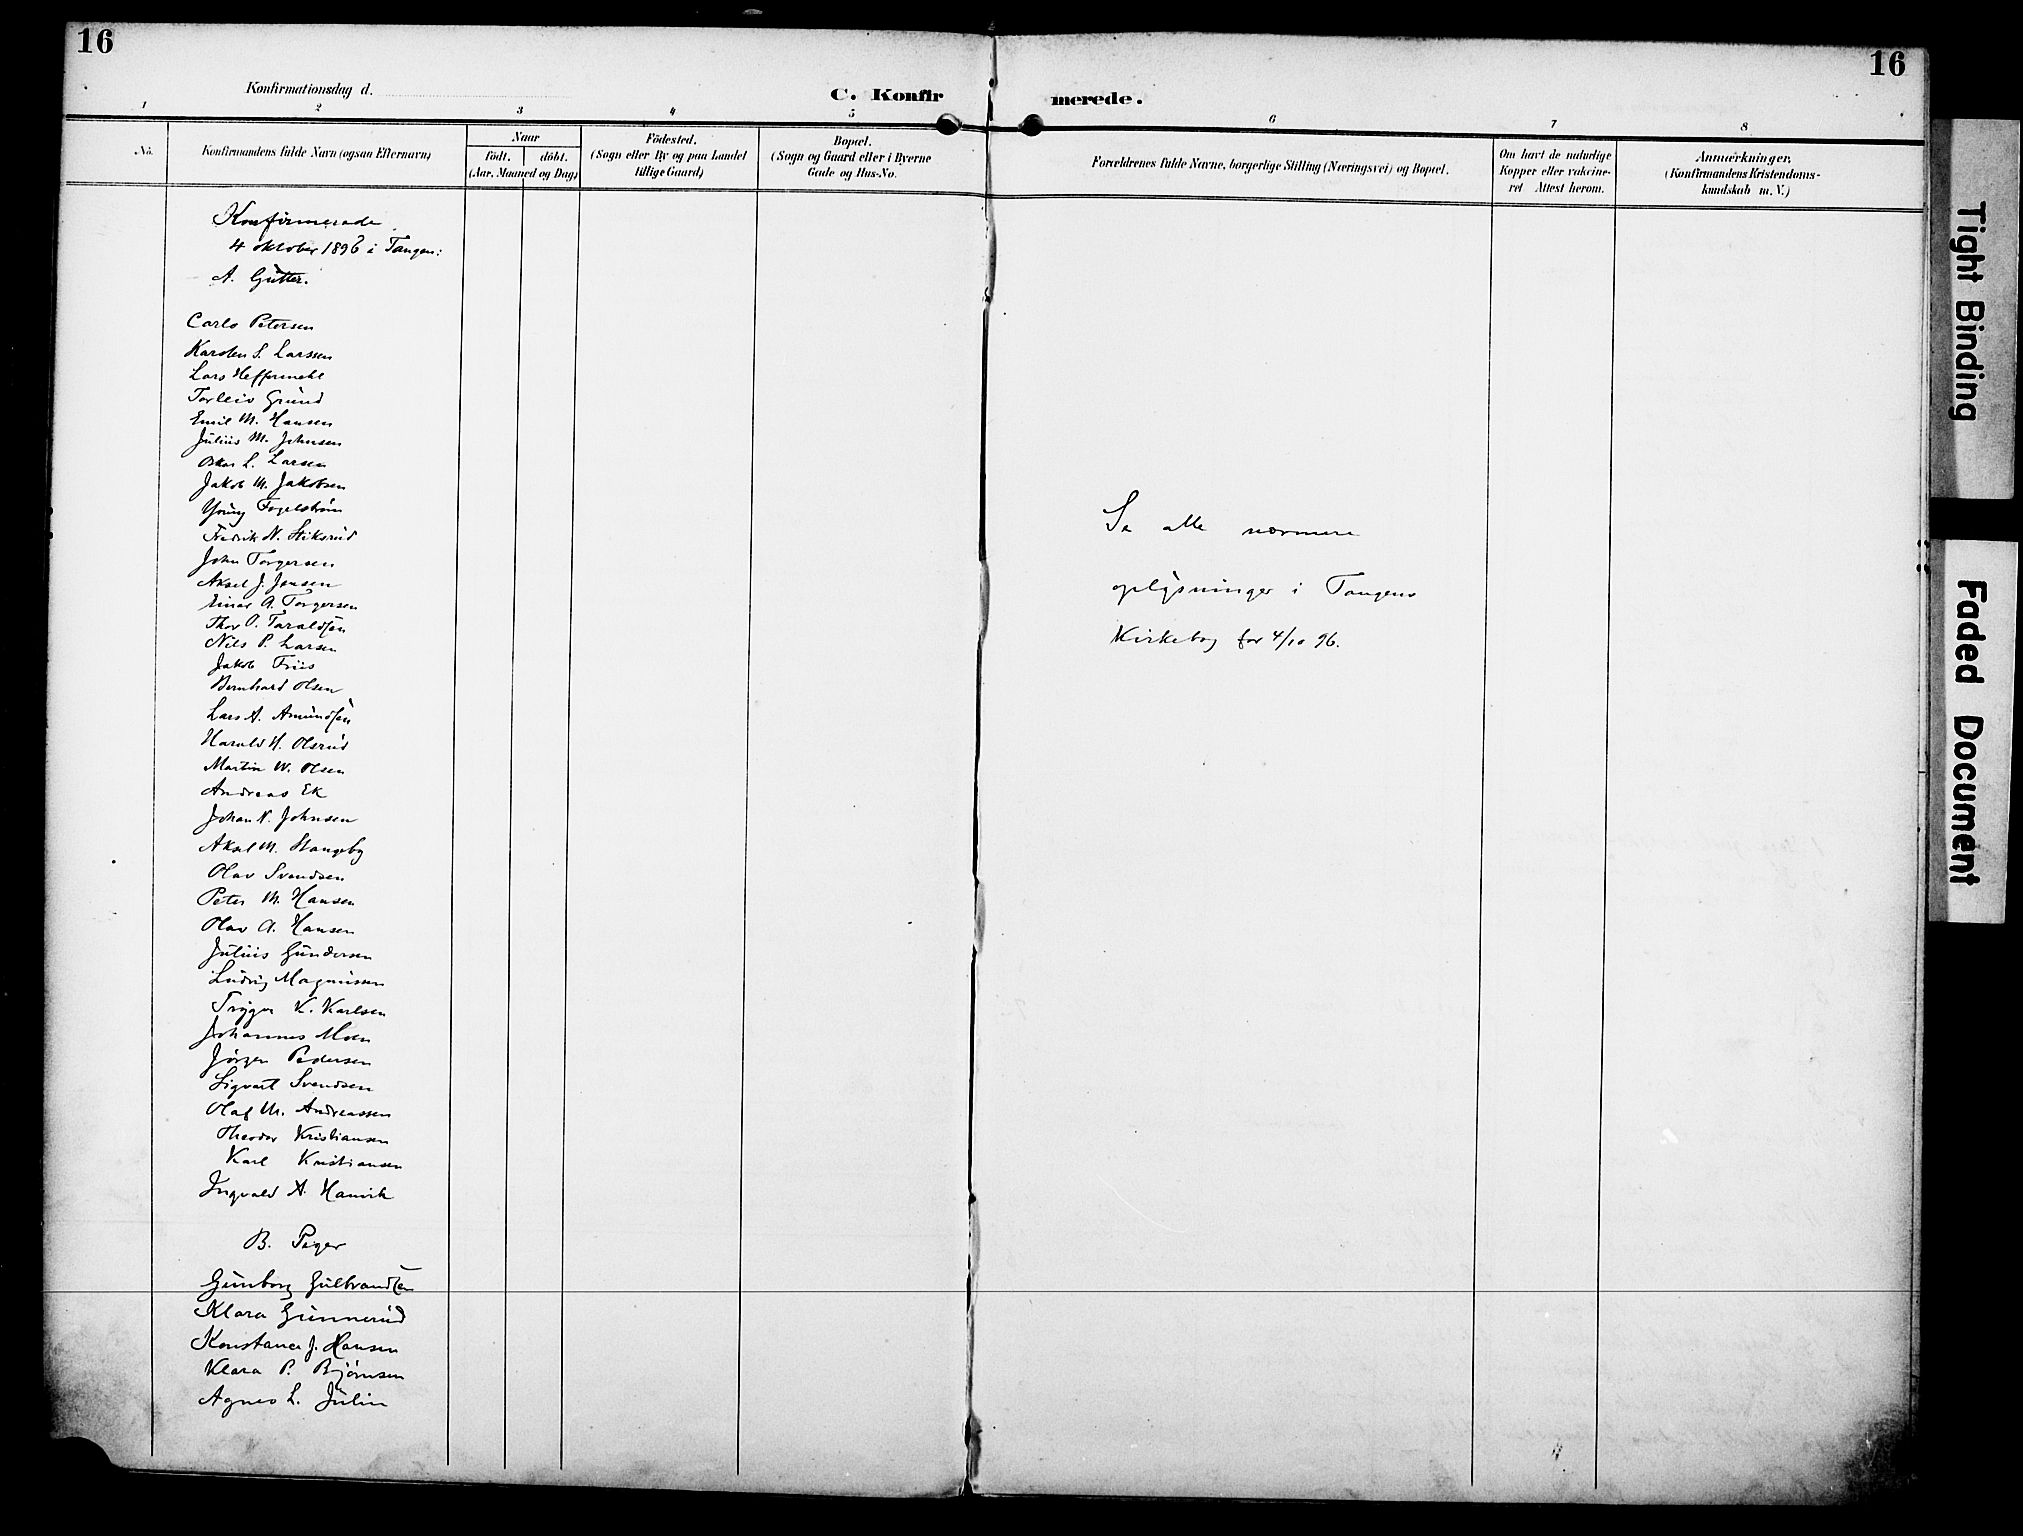 16
16
Konfirmationsdag d.
C. Konfir
merede.
1
2
3
4
5
6
7
8
No.
Konfirmandens fulde Navn (ogsaa Efternavn)
Naar
født.
døbt.
(Aar, Maaned og Dag)
Fødested.
(Sogn eller By og paa Landet
tillige Gaard)
Bopæl.
(Sogn og Gaard eller i Byerne
Gade og Hus-No.
Forældrenes fulde Navne, borgerlige Stilling (Næringsvei) og Bopæl.
Om havt de naturlige
Kopper eller vakcine-
ret Attest herom.
Anmærkninger,
(Konfirmandens Kristendoms-
kundskab m. V.)
Konfirmerede
4 oktober 1896 i Tangen:
A. Gutter.
Carlo Petersen
Karsten S. Larssen
Lars Heffermehl
Torleiv Grund
Emil M. Hansen
Julius M. Johnsen
Oskar L. Larsen
Jakob M. Jakobsen
Young Fogelstrøm
Fredrik N. Stiksrud
John Torgersen
Aksel J. Jensen
Einar A. Torgersen
Thor O. Taraldsen
Nils P. Larsen
Jakob Friis
Bernhard Olsen
Lars A. Amundsen
Harald H. Olsrud
Martin W. Olsen
Andreas Ek
Johan N. Johnsen
Aksel M. Stangeby
Olav Svendsen
Peter M. Hansen
Olav A. Hansen
Julius Gundersen
Ludvig Magnussen
Trygve K. Karlsen
Johannes Moen
Jörgen Pedersen
Sigvart Svendsen
Olaf M. Andreassen
Theodor Kristiansen
Karl Kristiansen
Ingvald A. Hamvik
B. Piger
Gunborg Gulbrandsen
Klara Gunnerud
Konstance J. Hansen
Klara P. Bjørnsen
Agnes L. Julin
Se alle nærmere
oplysninger i Tangens
Kirkebog for 4/10 96.
Tight Binding
Faded Document